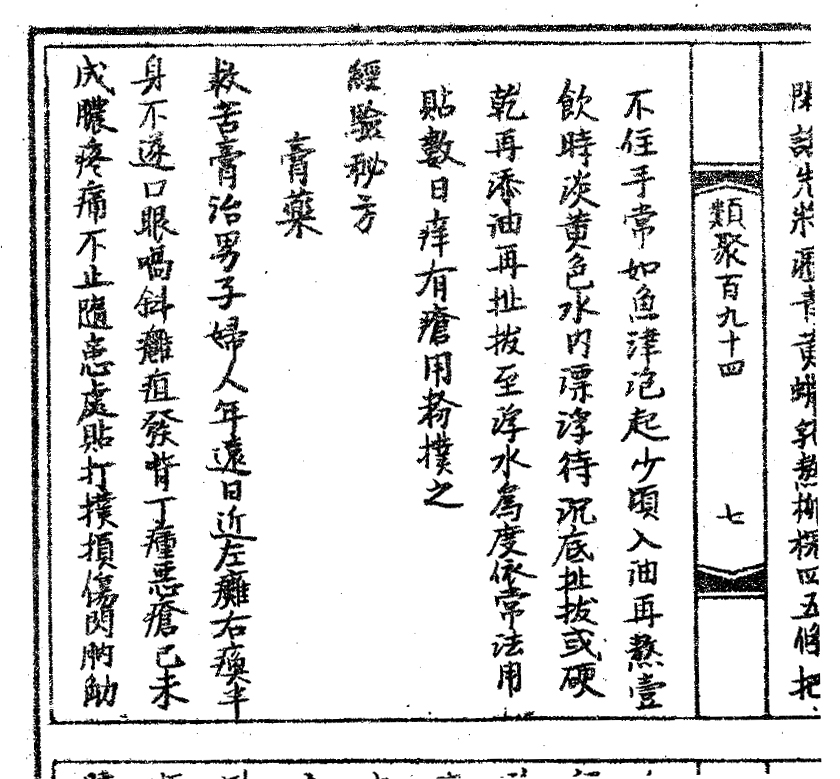 先將瀝青黃蠟乳熬柳棍四五條把
類聚百九十四 七
不住手常如魚津泡起少頃入油再熬壹
飲時淡黃色水內漂浮待沉底扯拔或硬
乾再添油再扯拔至浮水為度依常法用
貼數日痒有瘡用粉撲之
經驗秘方
膏藥
救苦膏治男子婦人年遠日近左癱右瘓半
身不遂口眼喎斜癰疽發背丁瘇惡瘡已未
成膿疼痛不止隨患處貼打撲損傷閃肭